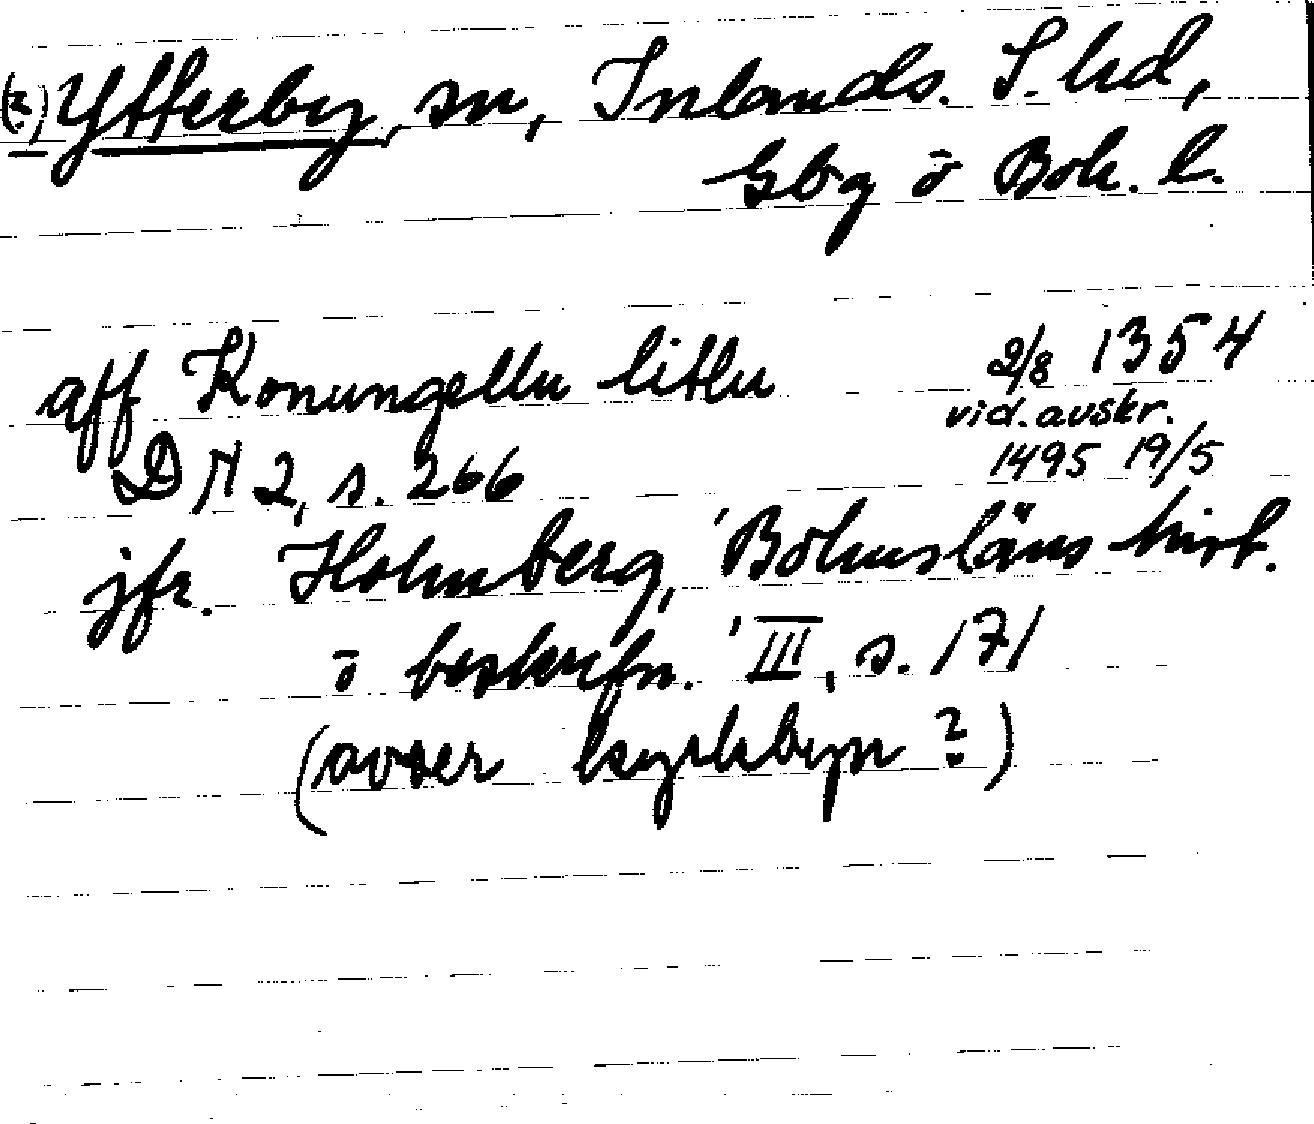 (?) Ytterby, sn, Inlands. S. hd,
Gbg ō Boh. l.
aff Konungellu litlu 2/8 1354
vid. avskr.
DN 2, s. 266 1495 19/5
jfr. Holmberg, 'Bohusläns hist.
ō beskrifn.' III, s. 171
(avser kyrkbyn?)